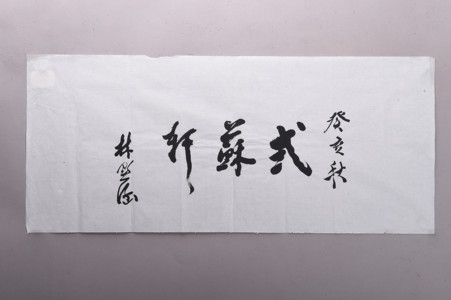 癸亥秋
式蘇軒
林